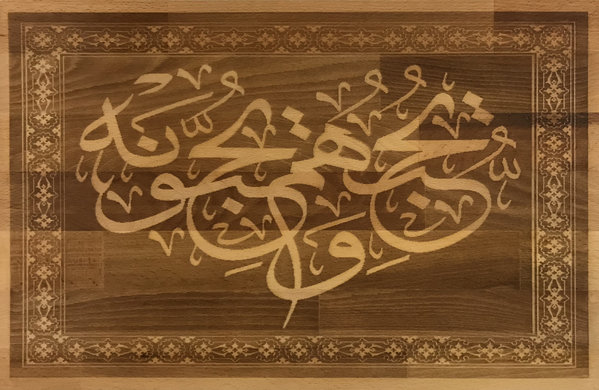 يُحِبُّهُمْ وَيُحِبُّونَهُ